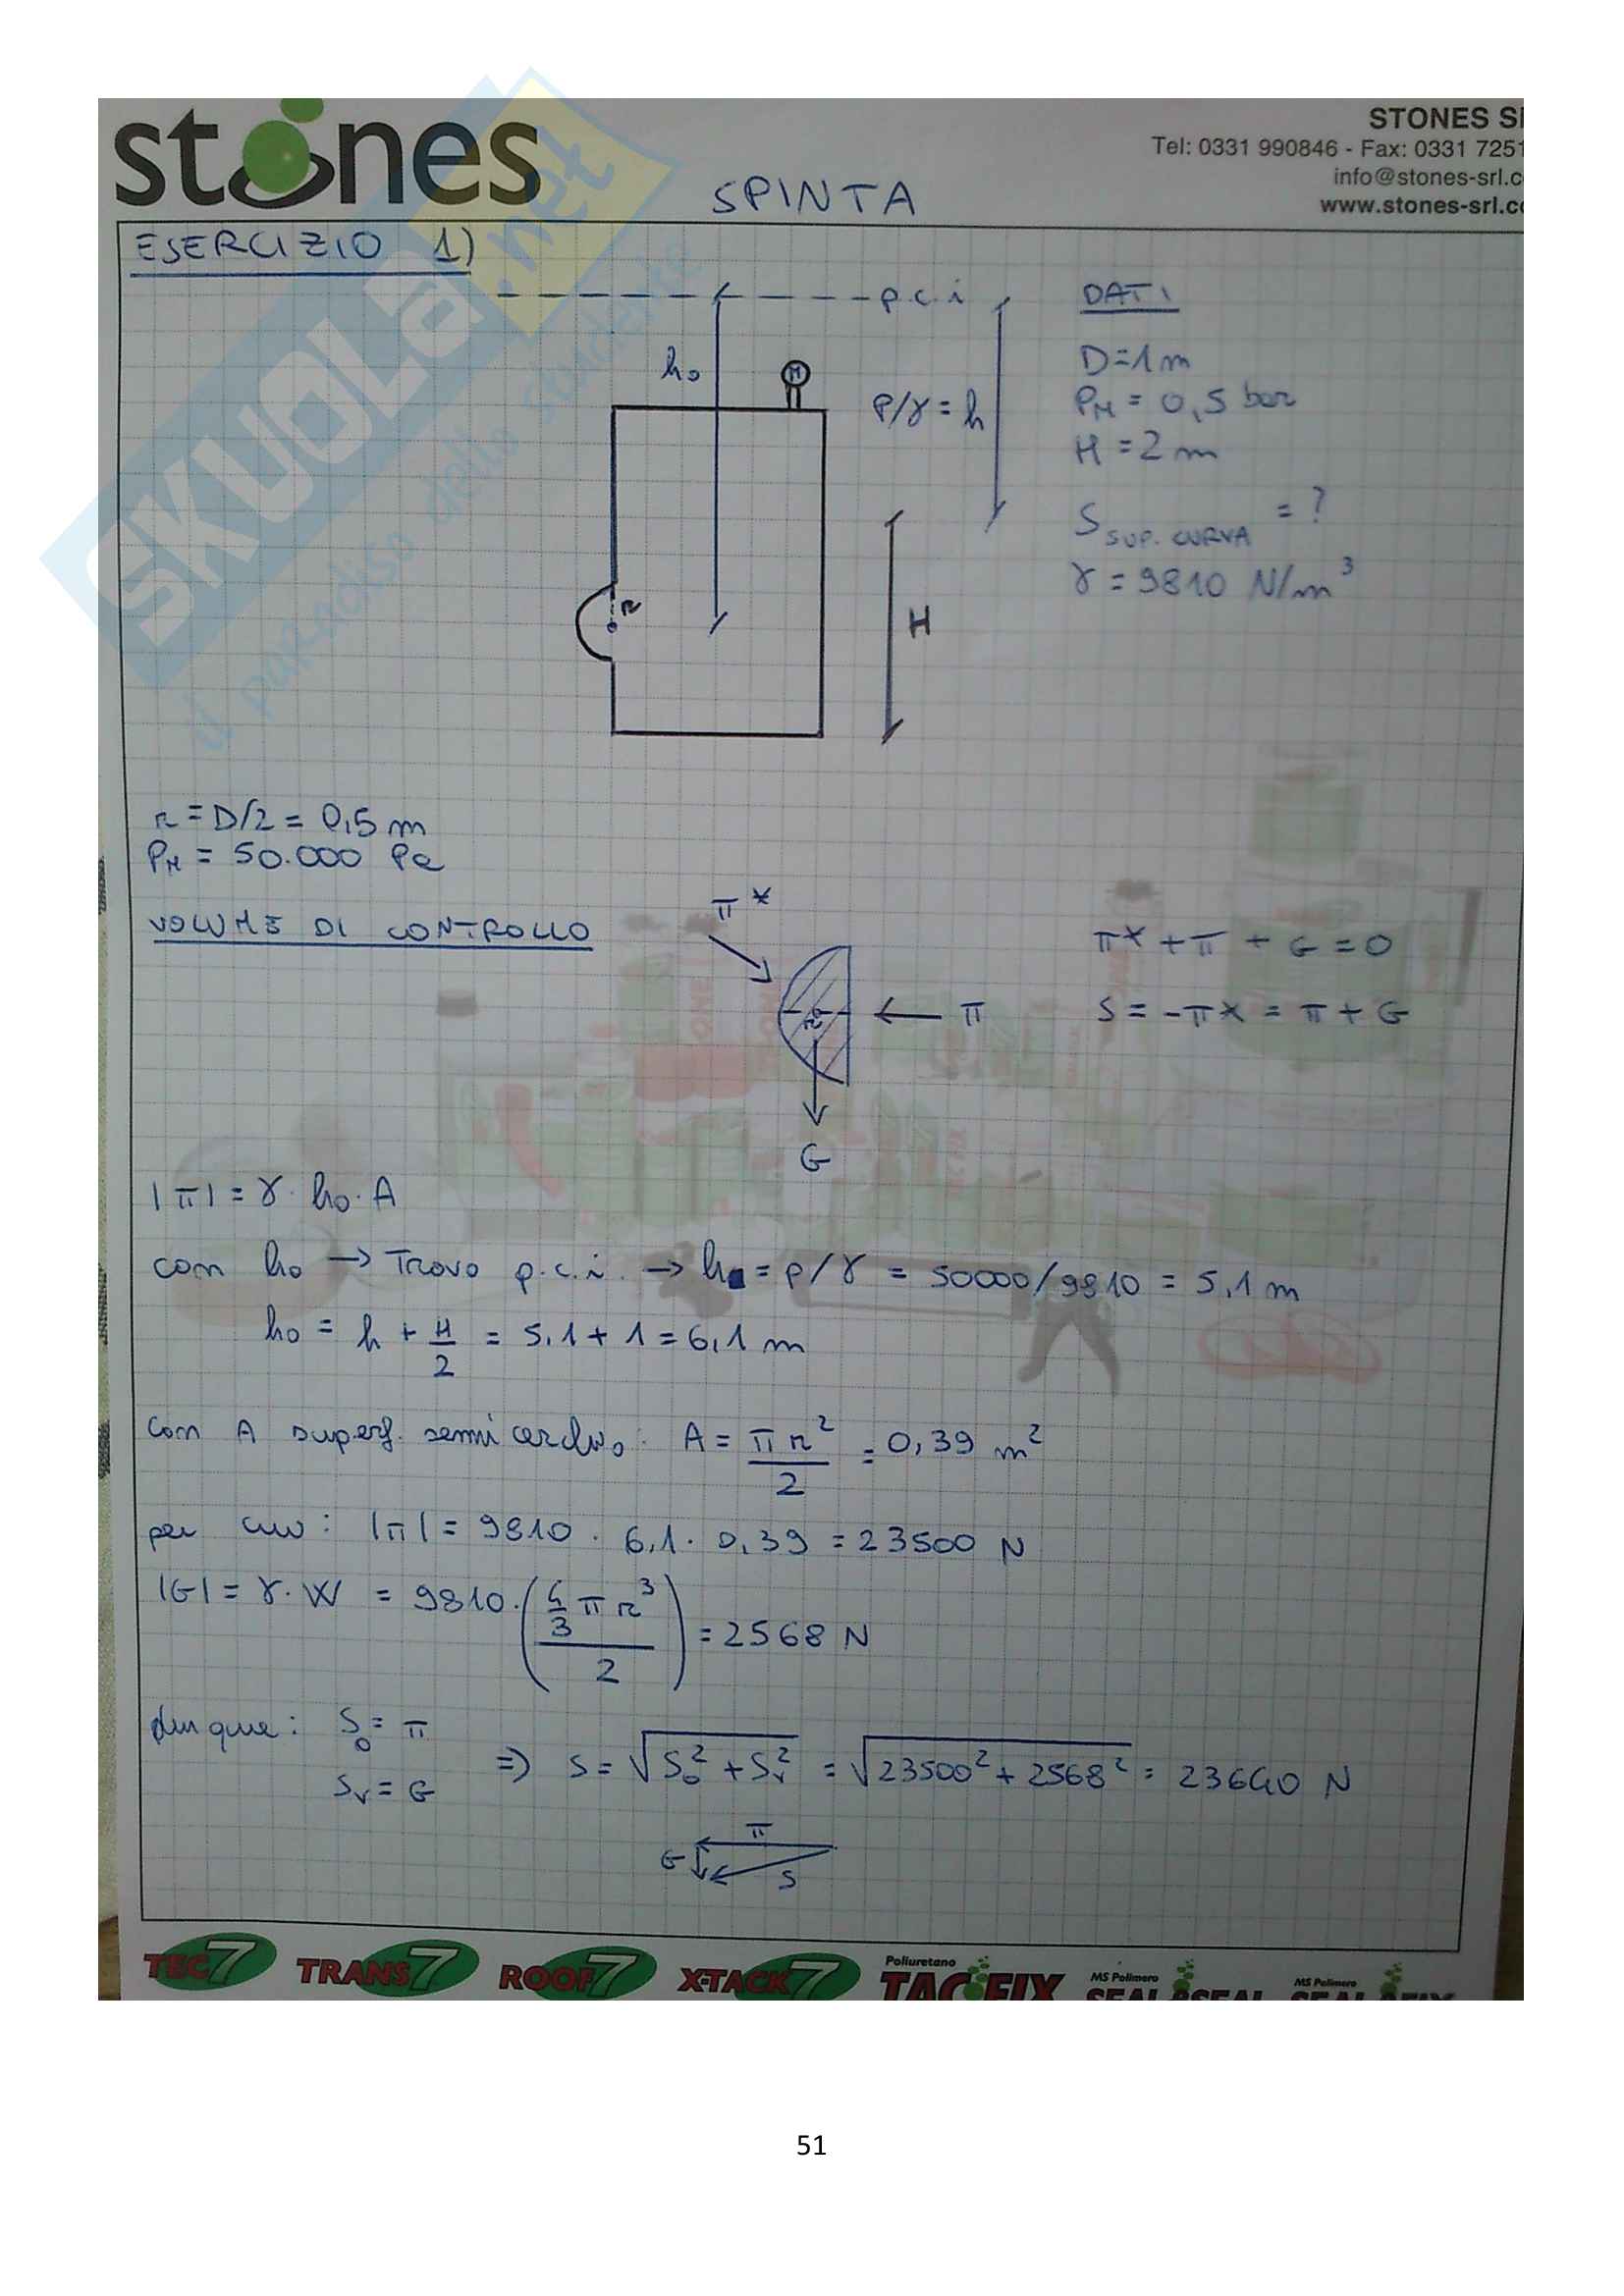 stones
STONES S
Tel: 0331 990846 - Fax: 0331 7251
info@stones-srl.c
www.stones-srl.c
SPINTA
SKUOLA.net
il paradiso dello studente
ESERCIZIO 1)
p.c.i
DATI
h₀
M
P/γ = h
D=1m
P_M = 0,5 bar
H = 2 m
S_SUP. CURVA = ?
γ = 9810 N/m³
r
H
r = D/2 = 0,5 m
P_M = 50.000 Pa
VOLUME DI CONTROLLO
π*
π* + π + G = 0
r
π
S = -π* = π + G
G
|π| = γ · h₀ · A
con h₀ → Trovo p.c.i. → h = p/γ = 50000/9810 = 5,1 m
h₀ = h + H/2 = 5,1 + 1 = 6,1 m
con A superf. semicerchio: A = πr²/2 = 0,39 m²
per cui: |π| = 9810 · 6,1 · 0,39 = 23500 N
|G| = γ · W = 9810 · (4/3 π r³ / 2) = 2568 N
dunque: S₀ = π
S_v = G
⇒ S = √(S₀² + S_v²) = √(23500² + 2568²) = 23640 N
π
G
S
TEC7 TRANS7 ROOF7 X-TACK7 Poliuretano TAC FIX MS Polimero MS Polimero
51